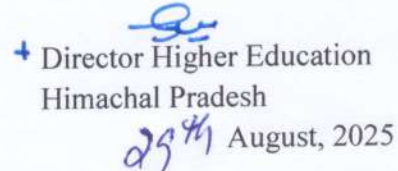 Director Higher Education
Himachal Pradesh
29th August, 2025